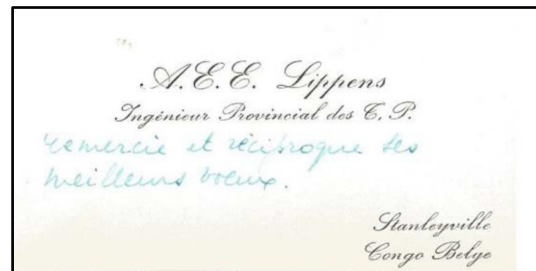 A.E.E. Lippens
Ingénieur Provincial des T. P.
remercie et réciproque ses
meilleurs voeux.
Stanleyville
Congo Belge